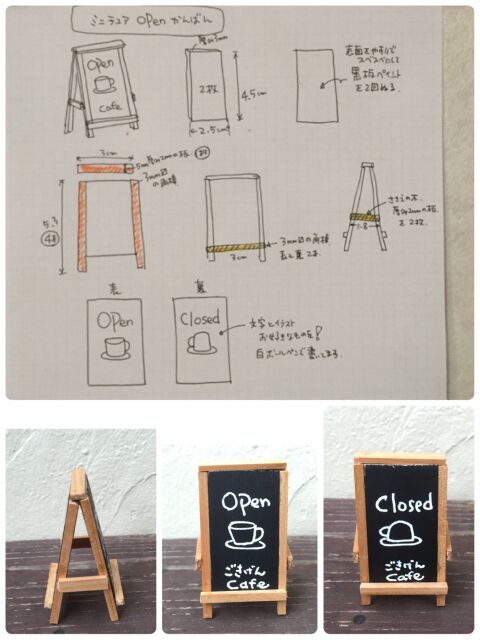 ミニチュア Open かんばん
厚み3mm
Open
cafe
2枚
4.5cm
2.5cm
表面をやすりで
スベスベにして
黒板ペイント
を2回ぬる。
3cm
5mm 厚み2mmの板
3mm角
の角棒
5.3
4本
3cm
3mm角の角棒
表と裏 2本
ささえの木
厚み2mmの板
を2枚
1.8
表
裏
Open
Closed
文字とイラスト
お好きなものを!
白ボールペンで書いてます。
Open
ごきげん
Cafe
Closed
ごきげん
Cafe